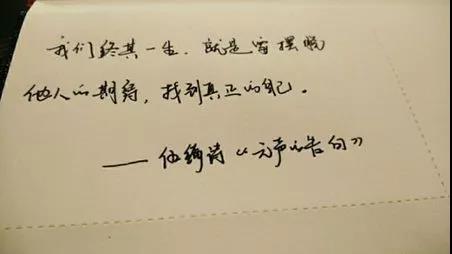 我们终其一生，就是要摆脱
他人的期待，找到真正的自己。
——伍绮诗《无声告白》